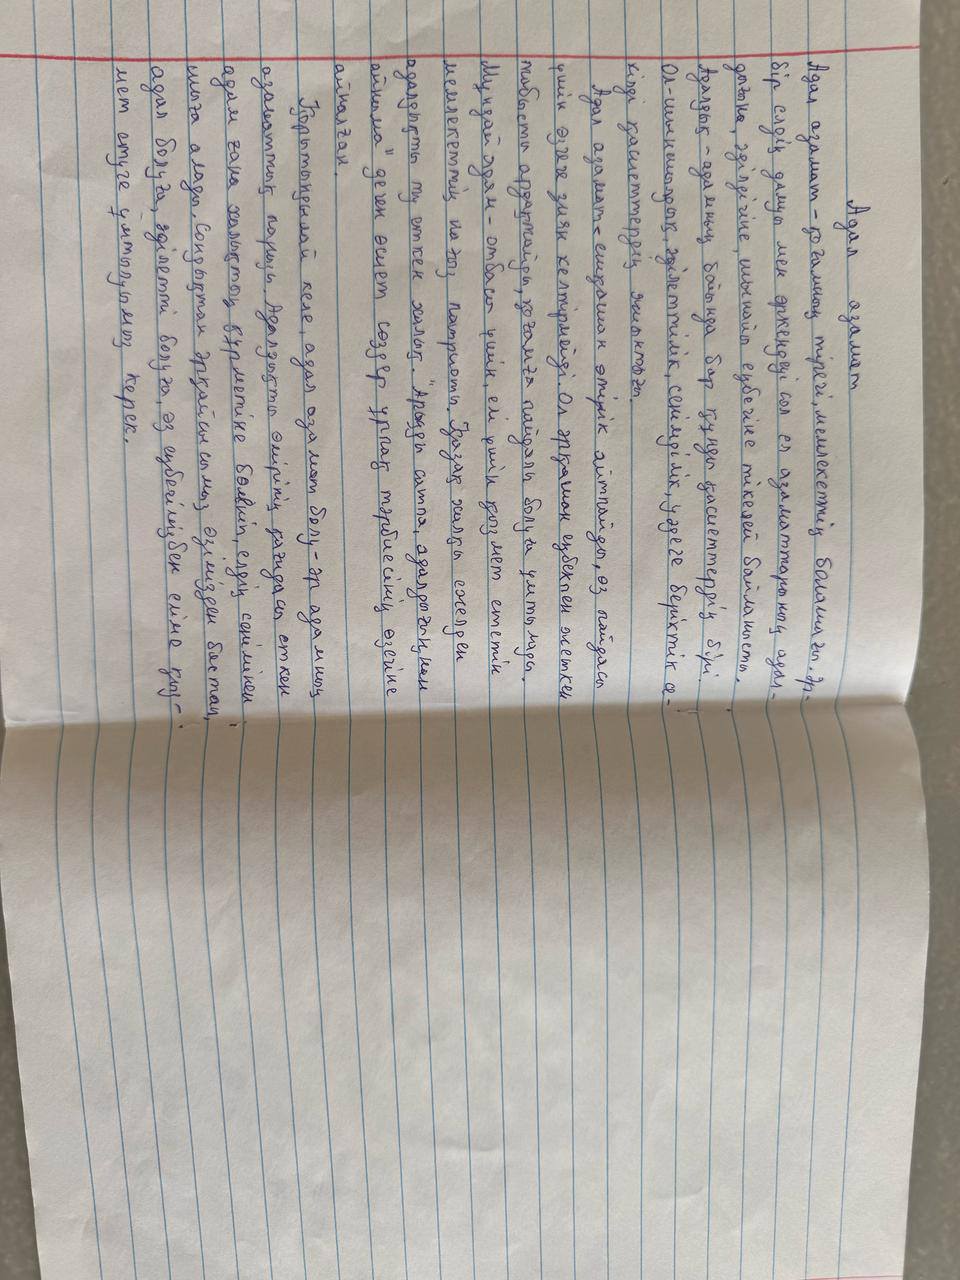 Адал азамат
Адал азамат - қоғамның тірегі, мемлекеттің болашағы. Әр-
бір елдің дамуы мен өркендеуі сол ел азаматтарының адал-
дығына, әділдігіне, шынайы еңбегіне тікелей байланысты.
Адалдық - адамның бойында бар құнды қасиеттердің бірі.
Ол - шыншылдық, әділеттілік, сенімділік, уәдеге беріктік се-
кілді қасиеттердің жиынтығы.
Адал адамат - ешқашан өтірік айтпайды, өз пайдасы
үшін өзгеге зиян келтірмейді. Ол әрқашан еңбекпен жеткен
табысты ардақтайды, қоғамға пайдалы болуға ұмтылады.
Мұндай адам - отбасы үшін, ел үшін қызмет ететін
мемлекеттің нағыз патриоты. Қазақ халқы ежелден
адалдықты ту еткен халық. "Арыңды сатпа, адалдығыңнан
айныма" деген өсиет сөздер ұрпақ тәрбиесінің өзегіне
айналған.
Қорытындылай келе, адал азамат болу - әр адамның
азаматтық парызы. Адалдықты өмірінің қағидасы еткен
адам ғана халықтың құрметіне бөленіп, елдің сенімінен
шыға алады. Сондықтан әрқайсысымыз өзімізден бастап,
адал болуға, әділетті болуға, өз еңбегіңізбен еліне қыз-
мет етуге ұмтылуымыз керек.